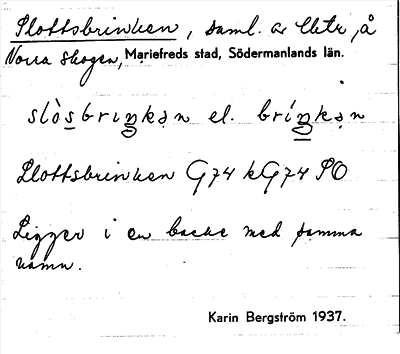 Slottsbrinken, saml. av lhtr, å
Norra skogen, Mariefreds stad, Södermanlands län.
slòsbriŋkən el. bríŋkən
Slottsbrinken G74 kG74 SO
Ligger i en backe med samma
namn.
Karin Bergström 1937.